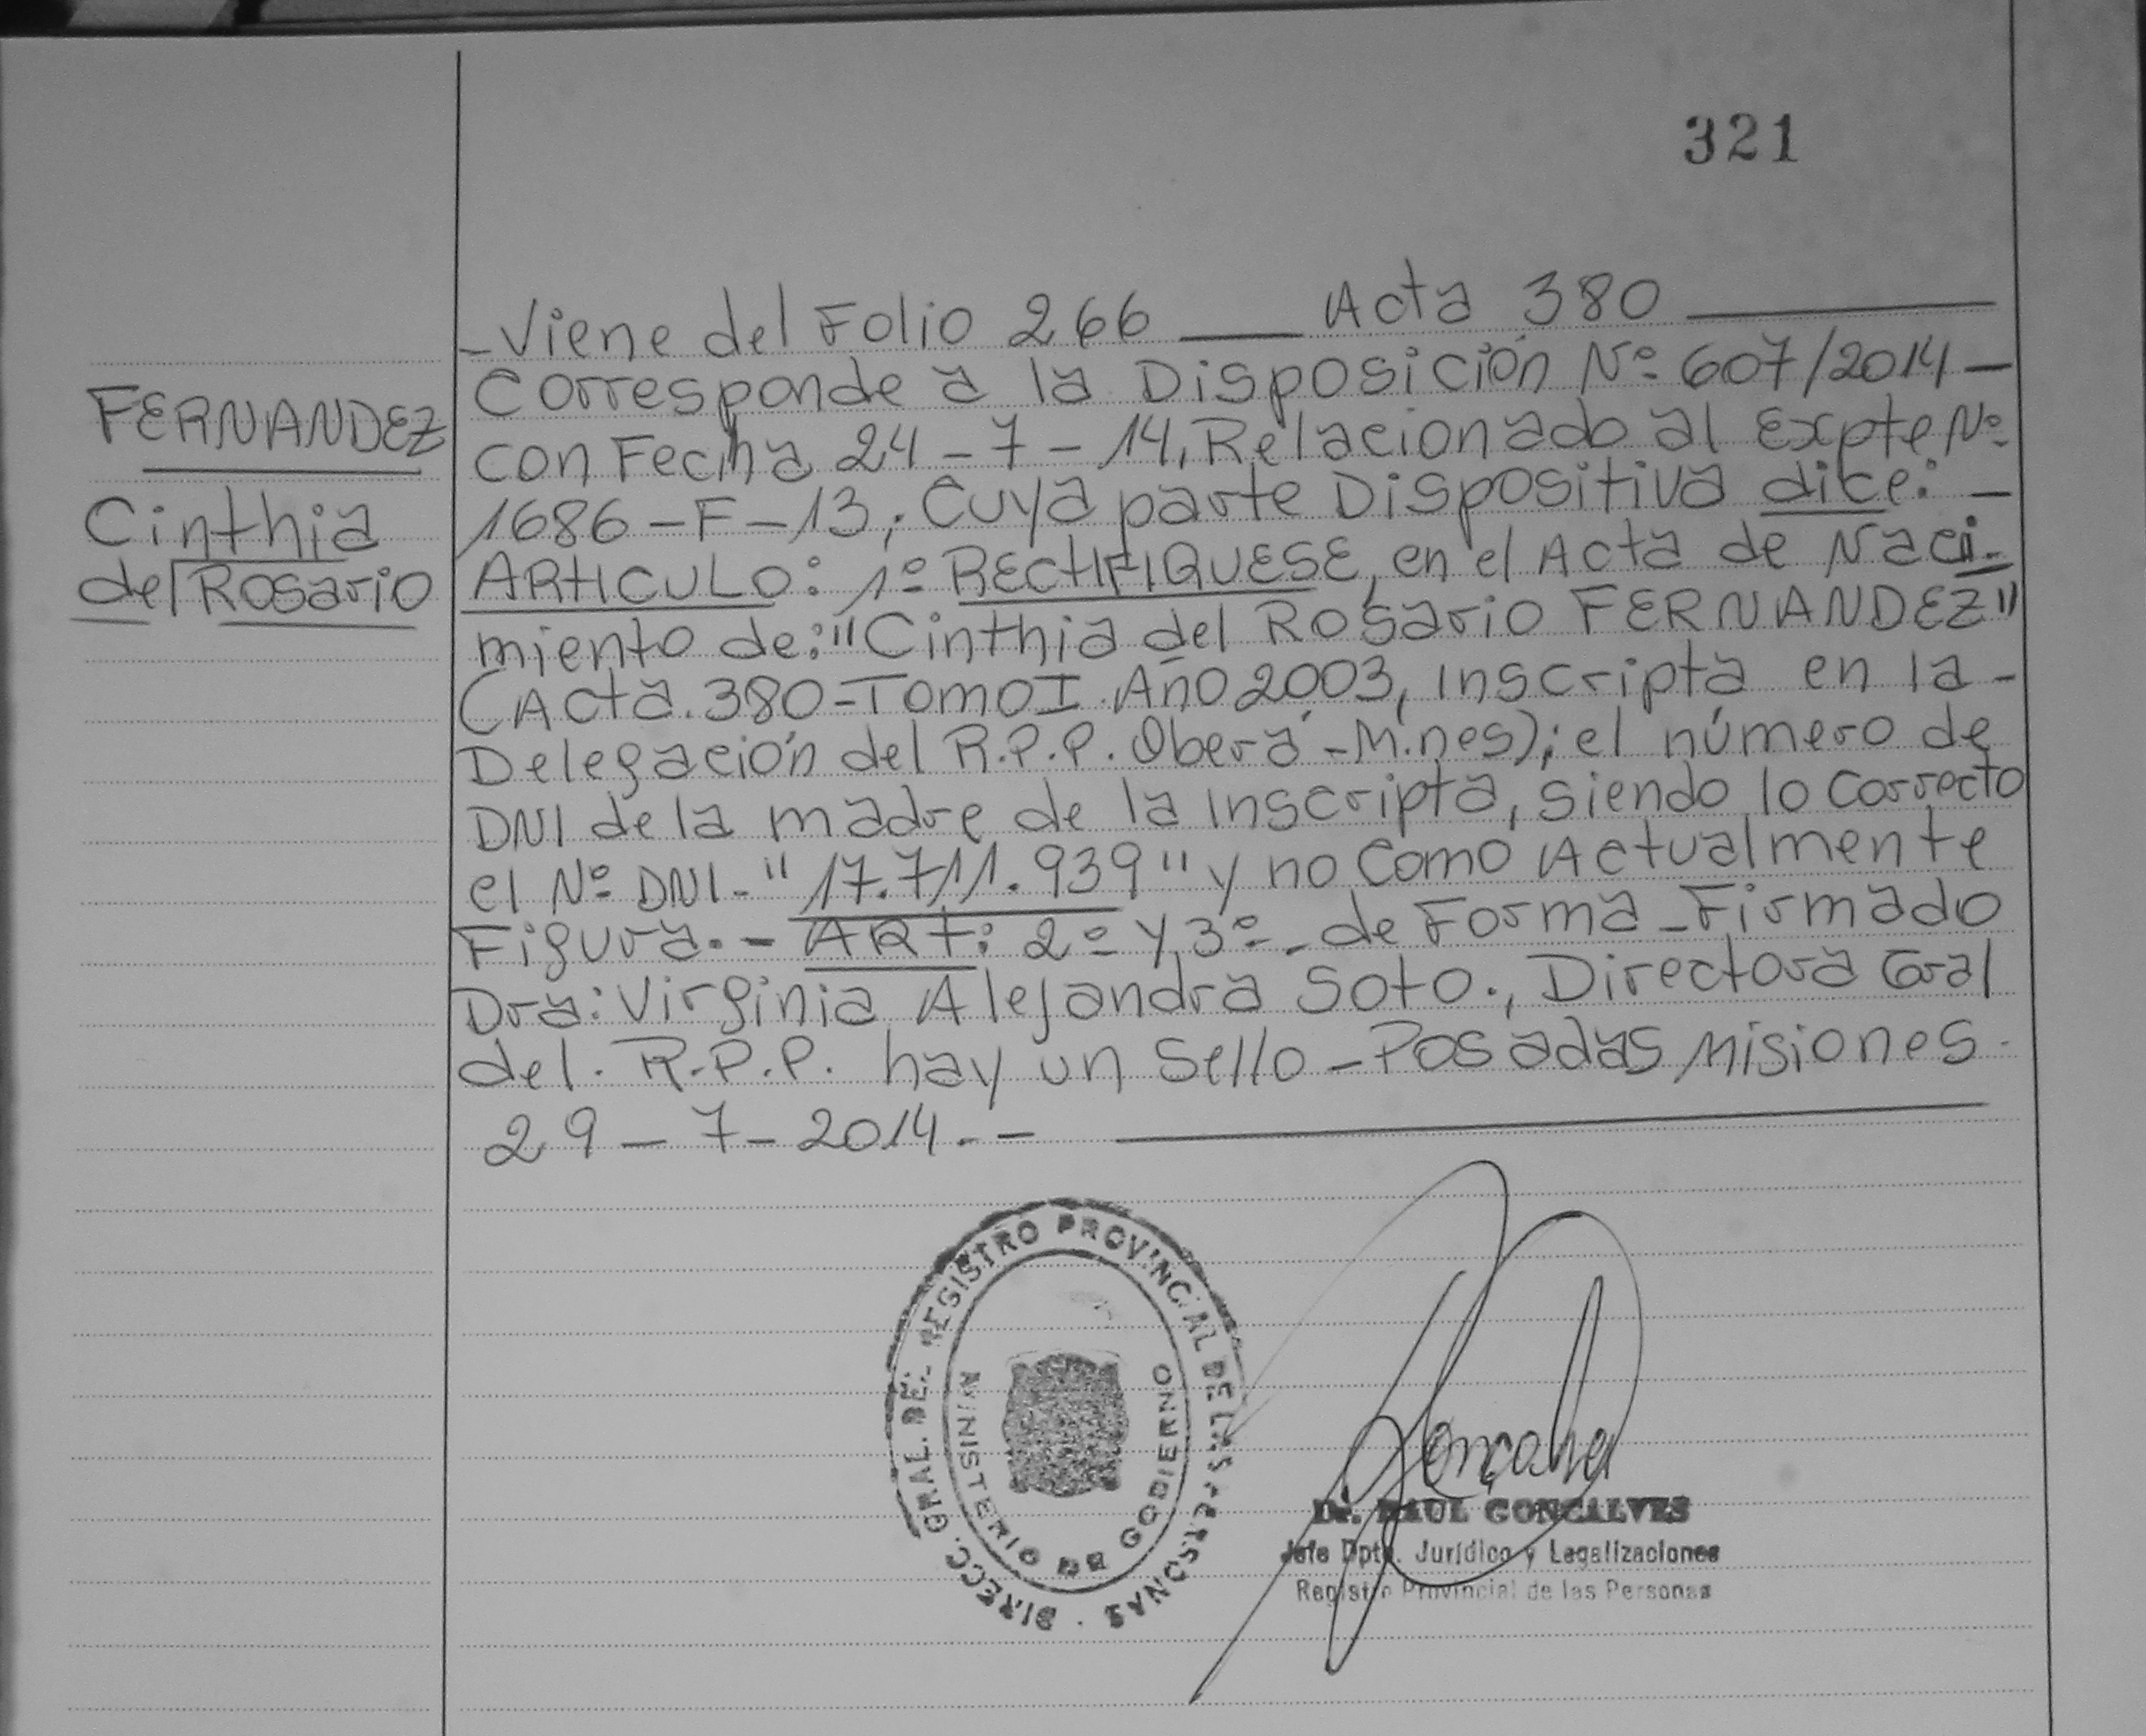 321
FERNANDEZ
Cinthia
del Rosario
-Viene del Folio 266 ___ Acta 380 ___
Corresponde a la Disposición Nº 607/2014 -
con Fecha 24-7-14, Relacionado al Expte Nº
1686-F-13, Cuya parte Dispositiva dice: -
ARTICULO: 1º RECTIFIQUESE, en el Acta de Naci-
miento de: "Cinthia del Rosario FERNANDEZ"
(Acta.380-Tomo I. Año 2003, Inscripta en la -
Delegación del R.P.P. Oberá - M.nes); el número de
DNI de la madre de la Inscripta, siendo lo Correcto
el Nº DNI- "17.711.939" y no Como Actualmente
Figura.- ART: 2º y 3º - de Forma - Firmado
Dra: Virginia Alejandra Soto., Directora Gral
del. R.P.P. hay un Sello - Posadas Misiones.
29-7-2014.-
DIRECC. GRAL. DEL REGISTRO PROVINCIAL DE LAS PERSONAS
MINISTERIO DE GOBIERNO
Dr. RAUL GONCALVES
Jefe Dpto. Jurídico y Legalizaciones
Registro Provincial de las Personas